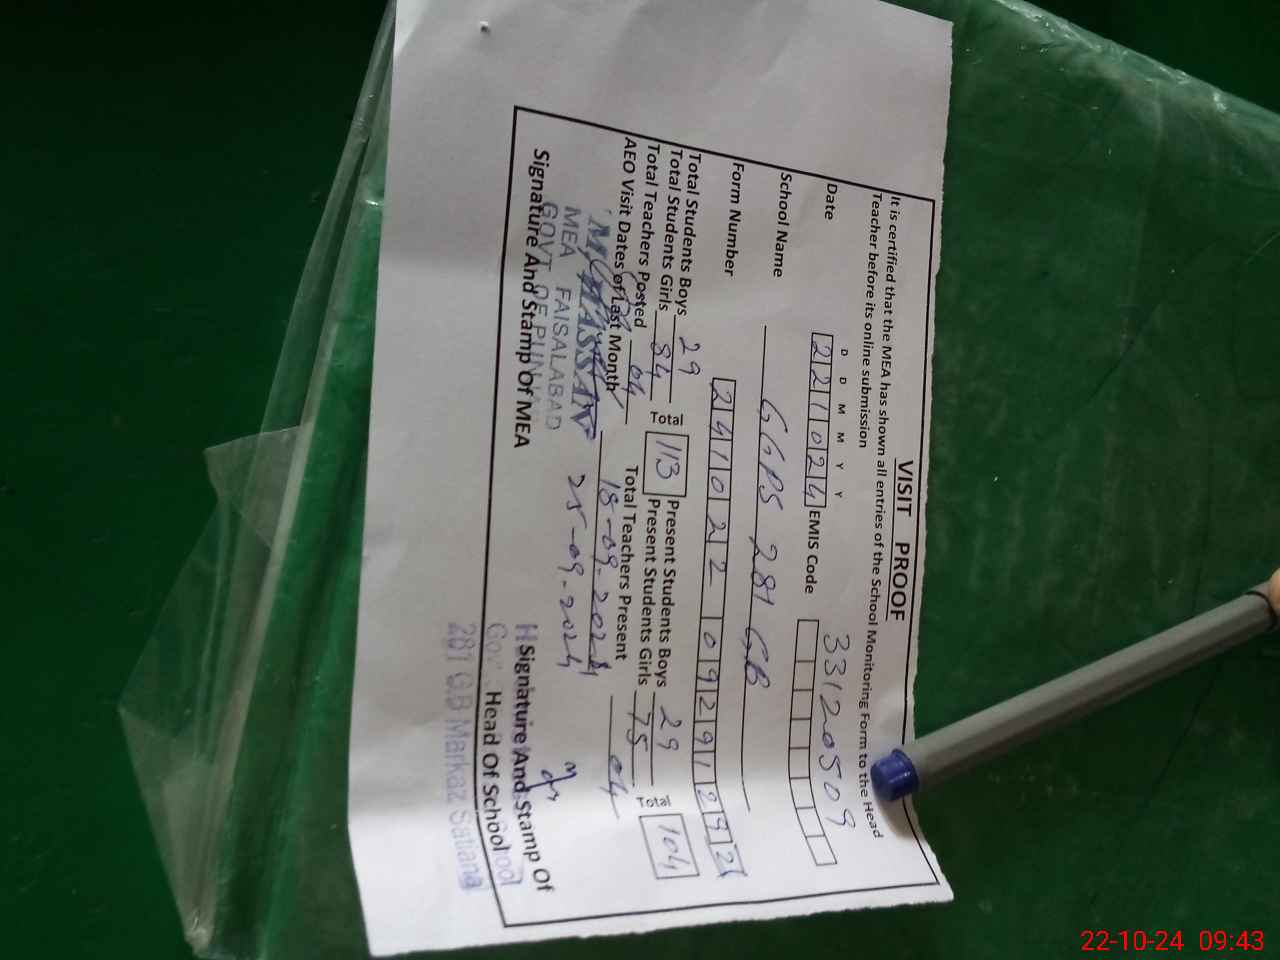 VISIT PROOF
It is certified that the MEA has shown all entries of the School Monitoring Form to the Head
Teacher before its online submission
D D M M Y Y
Date 221024 EMIS Code 33120509
School Name GGPS 281 GB
Form Number 241022 0929
Total Students Boys 29 Present Students Boys 29
Total Students Girls 84 Total 113 Present Students Girls 75 Total 104
Total Teachers Posted 04 Total Teachers Present 04
AEO Visit Dates of Last Month 18-09-2024
25-09-2024
MEA FAISALABAD
GOVT OF PUNJAB
Signature And Stamp Of MEA
Signature And Stamp Of
Head Of School
281 G.B Markaz Satiana
22-10-24 09:43